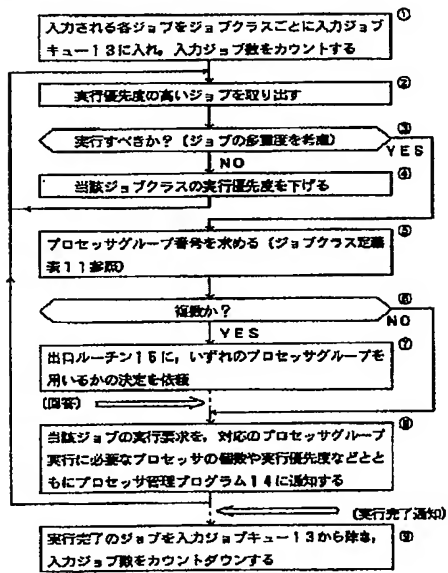 ①
入力される各ジョブをジョブクラスごとに入力ジョブ
キュー13に入れ，入力ジョブ数をカウントする
②
実行優先度の高いジョブを取り出す
③
実行すべきか？（ジョブの多重度を考慮）
YES
NO
④
当該ジョブクラスの実行優先度を下げる
⑤
プロセッサグループ番号を求める（ジョブクラス定義
表11参照）
⑥
複数か？
NO
YES
⑦
出口ルーチン15に，いずれのプロセッサグループを
用いるかの決定を依頼
(回答)
⑧
当該ジョブの実行要求を，対応のプロセッサグループ
実行に必要なプロセッサの個数や実行優先度などとと
もにプロセッサ管理プログラム14に通知する
(実行完了通知)
⑨
実行完了のジョブを入力ジョブキュー13から除き，
入力ジョブ数をカウントダウンする